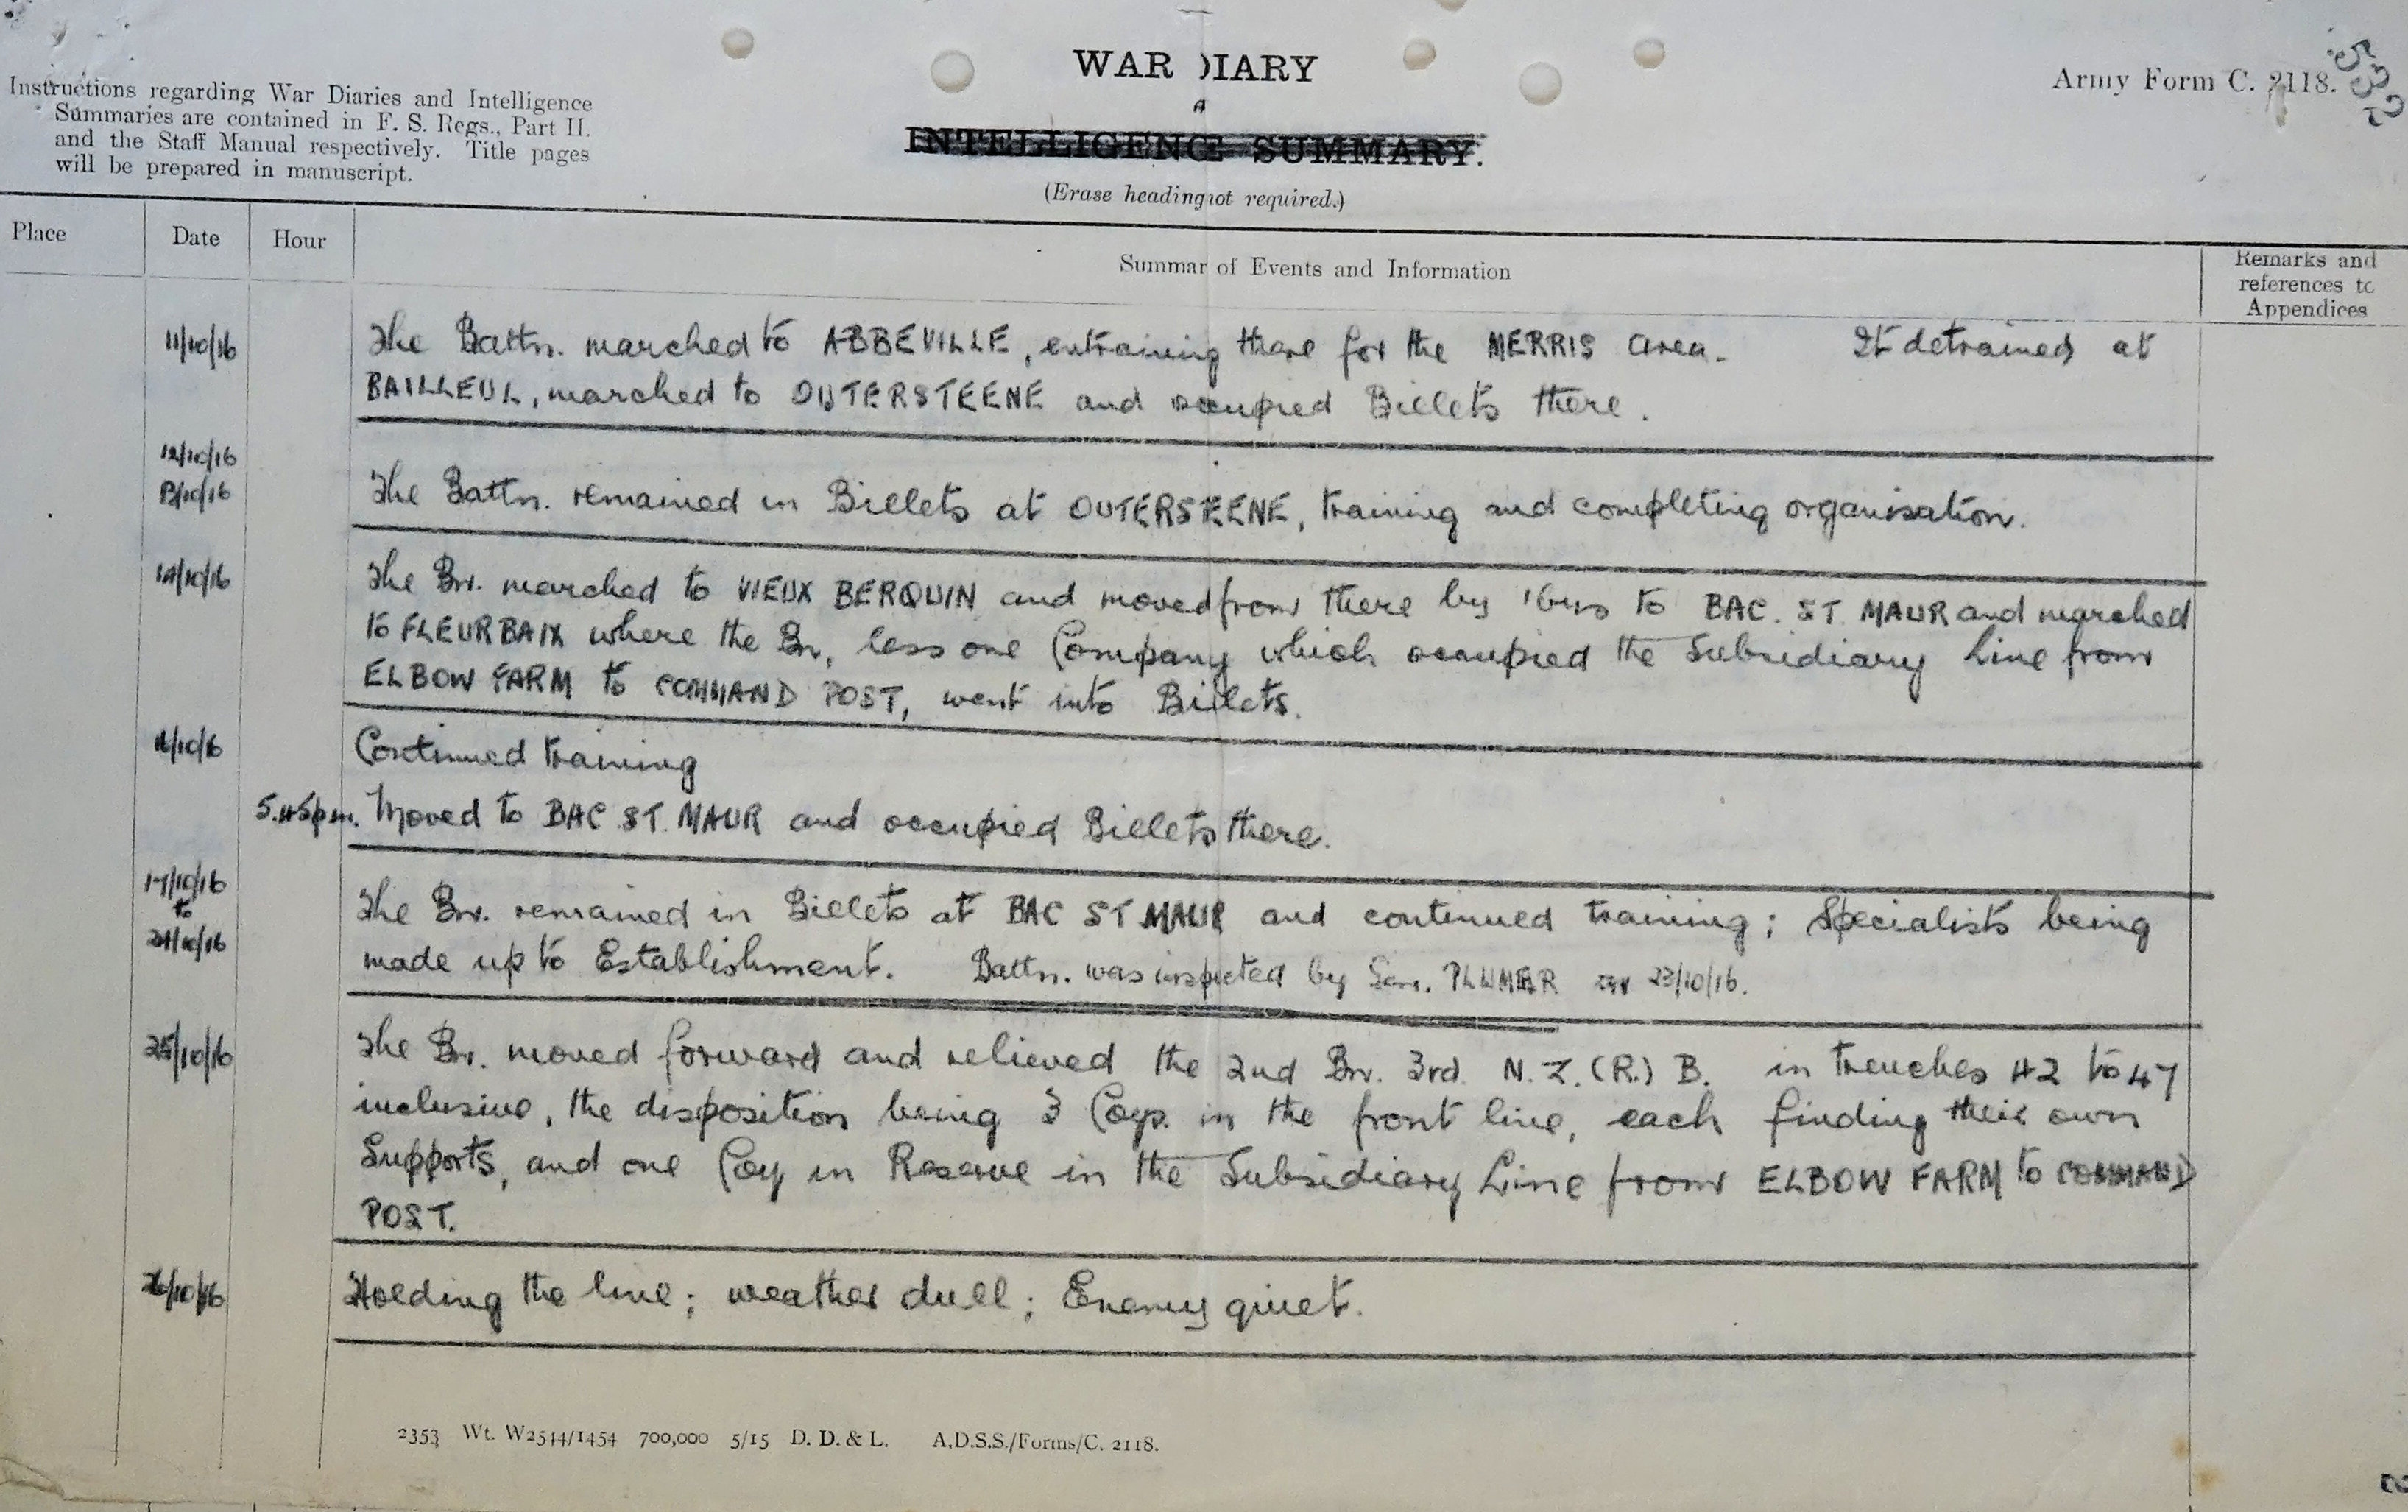 WAR DIARY
Army Form C. 2118.
532
Instructions regarding War Diaries and Intelligence
Summaries are contained in F. S. Regs., Part II.
and the Staff Manual respectively. Title pages
will be prepared in manuscript.
INTELLIGENCE SUMMARY.
(Erase heading not required.)
Place Date Hour Summar of Events and Information Remarks and
references to
Appendices
11/10/16 The Battn. marched to ABBEVILLE, entraining there for the MERRIS area. It detrained at
BAILLEUL, marched to OUTERSTEENE and occupied Billets there.
12/10/16
13/10/16 The Battn. remained in Billets at OUTERSTEENE, training and completing organisation.
14/10/16 The Bn. marched to VIEUX BERQUIN and moved from there by to BAC. ST. MAUR and marched
to FLEURBAIX where the Bn, less one Company which occupied the Subsidiary Line from
ELBOW FARM to COMMAND POST, went into Billets.
16/10/16 Continued training
5.45pm. Moved to BAC ST. MAUR and occupied Billets there.
17/10/16
to
24/10/16
The Bn. remained in Billets at BAC ST MAUR and continued training; Specialists being
made up to Establishment. Battn. was inspected by Gen. PLUMER on 23/10/16.
25/10/16 The Bn. moved forward and relieved the 2nd Bn. 3rd. N.Z.(R.) B. in trenches 42 to 47
inclusive, the disposition being 3 Coys. in the front line, each finding their own
Supports, and one Coy in Reserve in the Subsidiary Line from ELBOW FARM to COMMAND
POST.
26/10/16 Holding the line; weather dull; Enemy quiet.
2353 Wt. W2544/1454 700,000 5/15 D. D. & L. A.D.S.S./Forms/C. 2118.